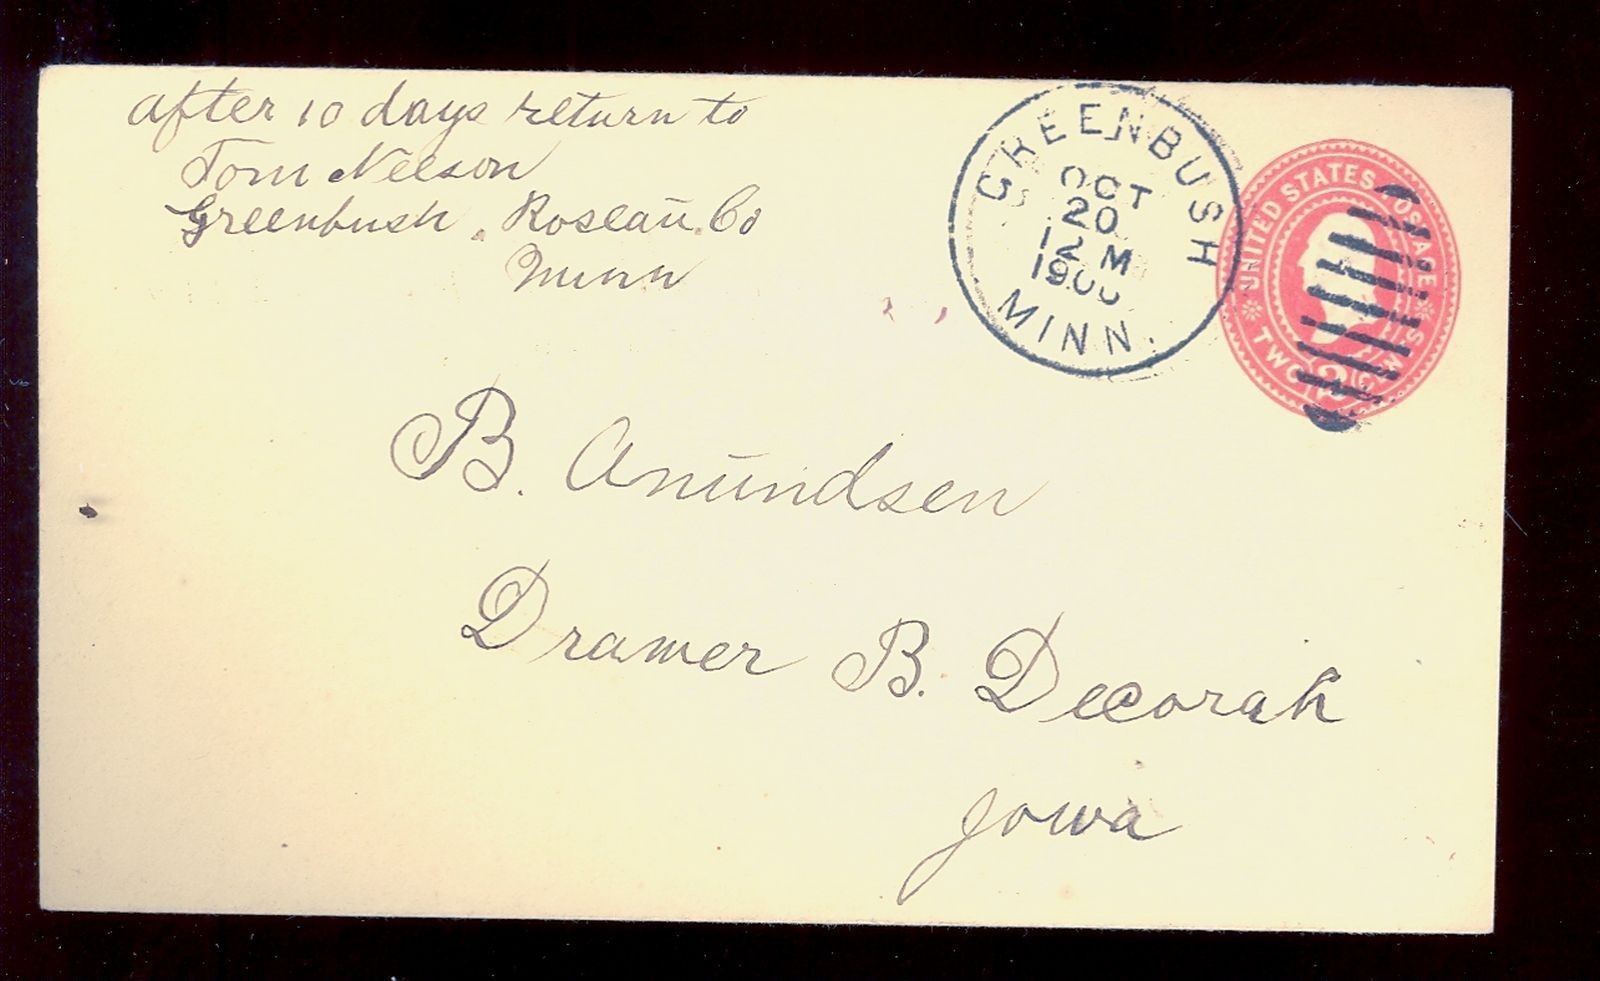 after 10 days return to
Tom Nelson
Greenbush, Roseau Co
Minn
GREENBUSH
OCT
20
12 M
1900
MINN.
UNITED STATES POSTAGE
TWO 2 CENTS
B. Anundsen
Drawer B. Decorah
Jowa